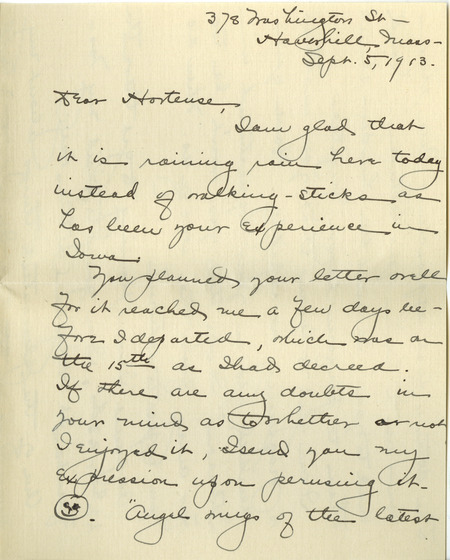 378 Washington St-
Haverhill, Mass-
Sept. 5, 1913.
Dear Hortense,
I am glad that
it is raining rain here today
instead of walking-sticks as
has been your experience in
Iowa
You planned your letter well
for it reached me a few days be-
fore I departed, which was on
the 15th as I had decreed.
If there are any doubts in
your mind as to whether or not
I enjoyed it, I send you my
expression upon perusing it-
. "Angel wings of the latest